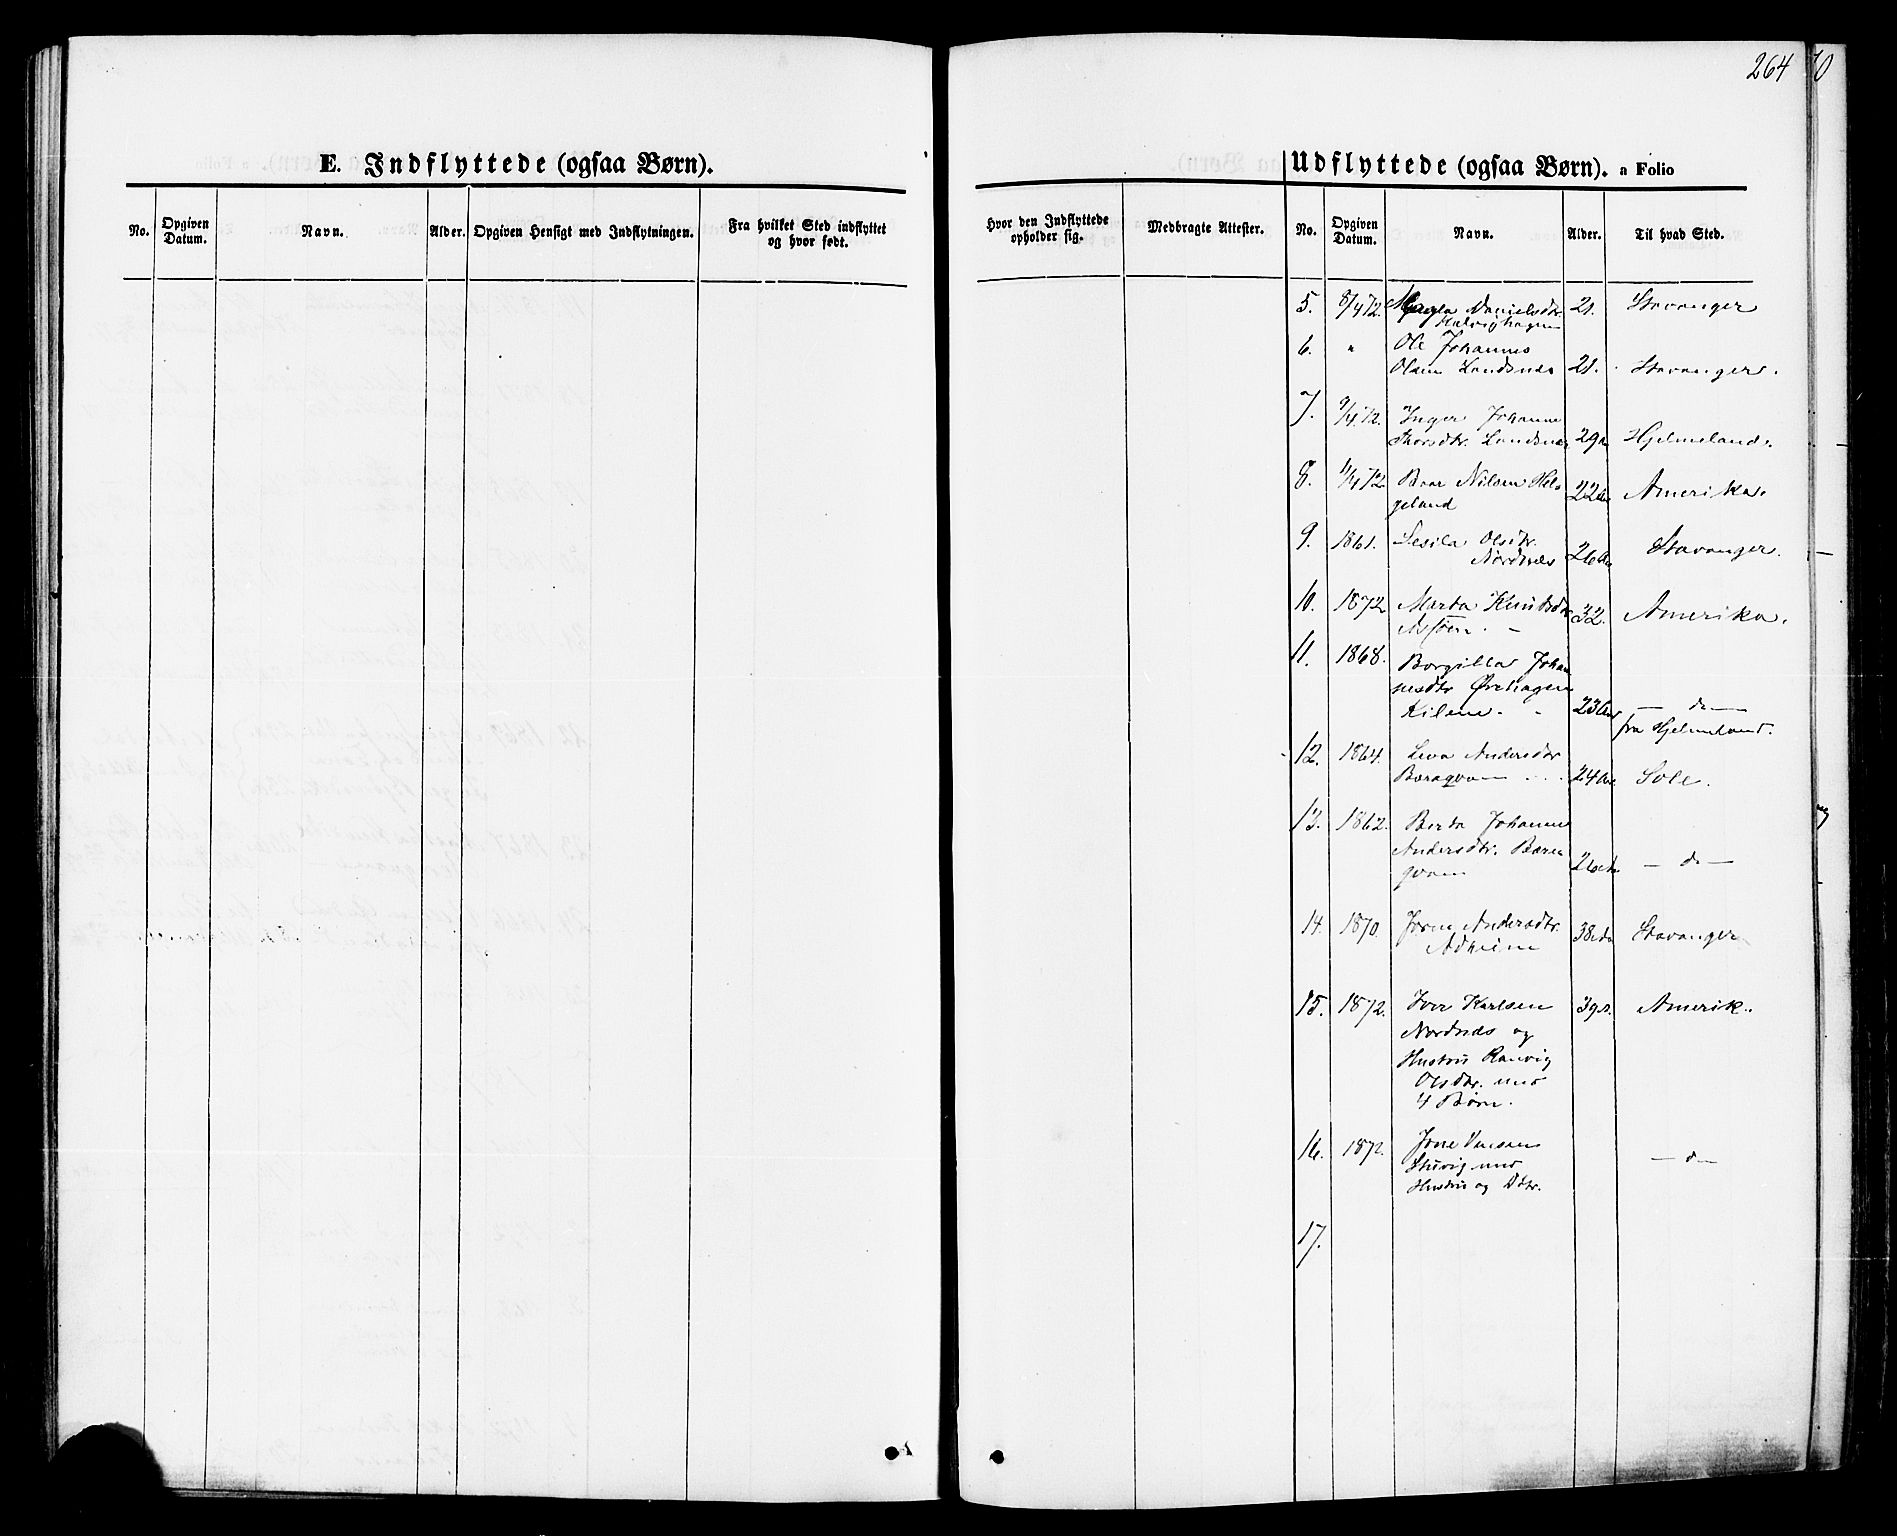 264
E. Indflyttede (ogsaa Børn).
No.
Opgiven Datum.
Navn.
Alder.
Opgiven Hensigt med Indflytningen.
Fra hvilket Sted indflyttet og hvor født.
Hvor den Indflyttede opholder sig.
Medbragte Attester.
Udflyttede (ogsaa Børn). a Folio
No.
Opgiven Datum.
Navn.
Alder.
Til hvad Sted.
5. 8/4 72. Danielsdtr. 21. Stavanger
Halvighagen
6. " Ole Johannes
Olsen Landsnes 21. Stavanger.
7. 9/4 72. Inger Johanne
Thorsdtr. Landsnes 29 Hjelmeland.
8. 11/4 72. Baar Nilsen Hel
geland 22 Amerika.
9. 1861. Sesila Olsdtr.
Nordnæs 26 Stavanger.
10. 1872 Marta Knudsdtr 32. Amerika.
11. 1868. Borgilla Johan
nesdtr Ørehagen
Kilene. 23 — do —
fra Hjelmeland.
12. 1864. Lena Andersdtr
24 Sole.
13. 1862. Berta Johanne
Andersdtr. Bære
26 — do —
14. 1870. Jorine Andersdtr. 38 Stavanger
15. 1872. Iver Karlsen 39 Amerik.
Nordnæs og
Hustru Ranvig
Olsdtr. med
4 Børn.
16. 1872. Jone — do —
med
Hustru og Dtr.
17.